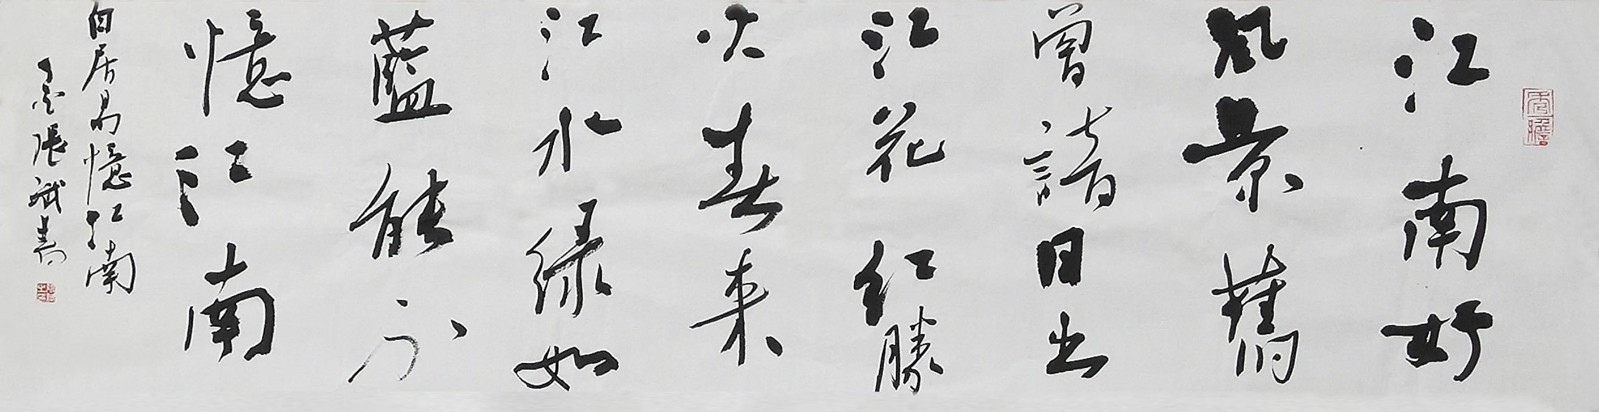 江南好
風景舊
曾諳日出
江花紅勝
火春来
江水绿如
藍能不
憶江南
白居易憶江南
張斌書